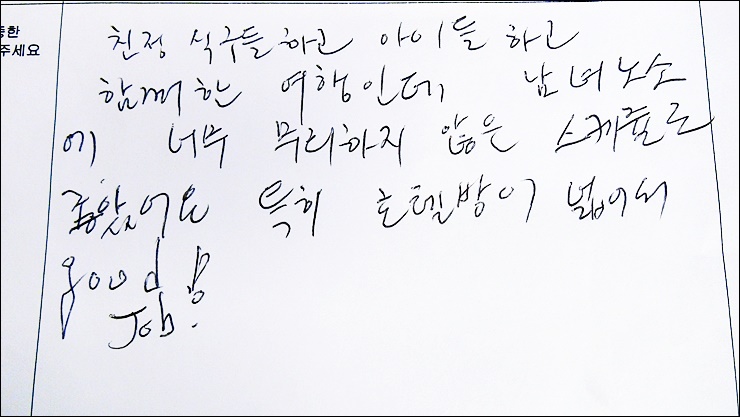 주세요
친정 식구들하고 아이들 하고
함께한 여행인데 남녀노소
에 너무 무리하지 않은 스케줄로
좋았어요 특히 호텔방이 넓어서
good!
Job!